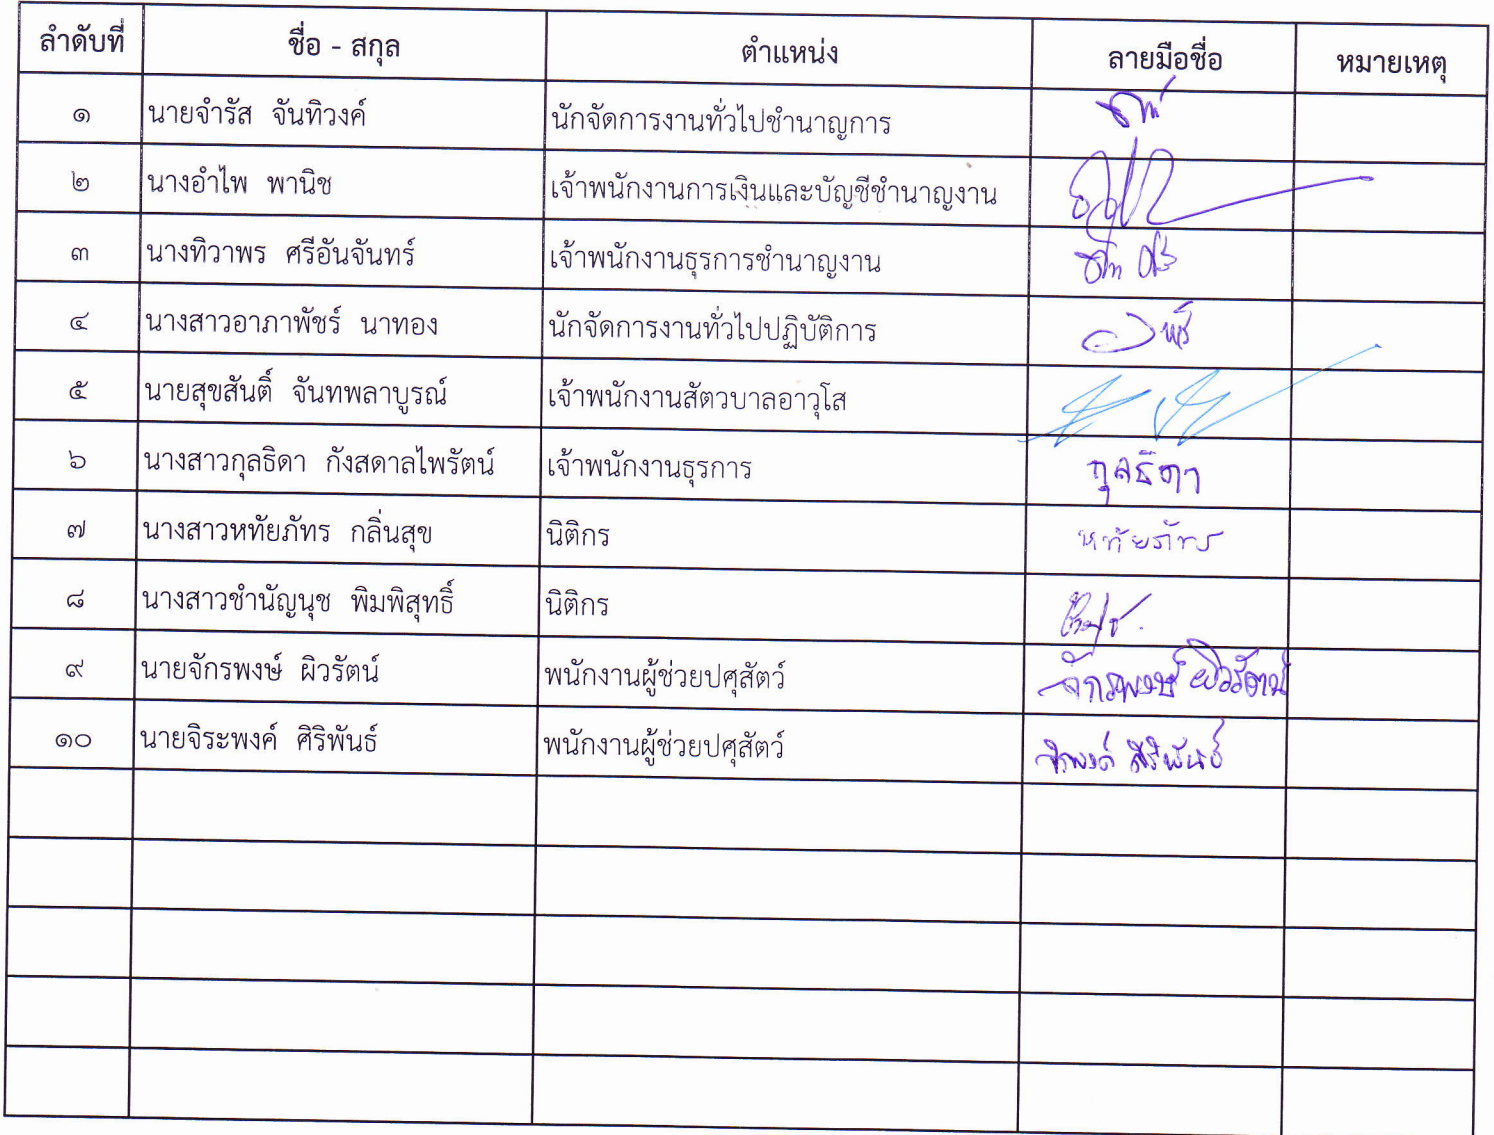 ลำดับที่ ชื่อ - สกุล ตำแหน่ง ลายมือชื่อ หมายเหตุ
๑ นายจำรัส จันทิวงค์ นักจัดการงานทั่วไปชำนาญการ
๒ นางอำไพ พานิช เจ้าพนักงานการเงินและบัญชีชำนาญงาน
๓ นางทิวาพร ศรีอันจันทร์ เจ้าพนักงานธุรการชำนาญงาน
๔ นางสาวอาภาพัชร์ นาทอง นักจัดการงานทั่วไปปฏิบัติการ
๕ นายสุขสันติ์ จันทพลาบูรณ์ เจ้าพนักงานสัตวบาลอาวุโส
๖ นางสาวกุลธิดา กังสดาลไพรัตน์ เจ้าพนักงานธุรการ กุลธิดา
๗ นางสาวหทัยภัทร กลิ่นสุข นิติกร หทัยภัทร
๘ นางสาวชำนัญนุช พิมพิสุทธิ์ นิติกร
๙ นายจักรพงษ์ ผิวรัตน์ พนักงานผู้ช่วยปศุสัตว์ จักรพงษ์ ผิวรัตน์
๑๐ นายจิระพงค์ ศิริพันธ์ พนักงานผู้ช่วยปศุสัตว์